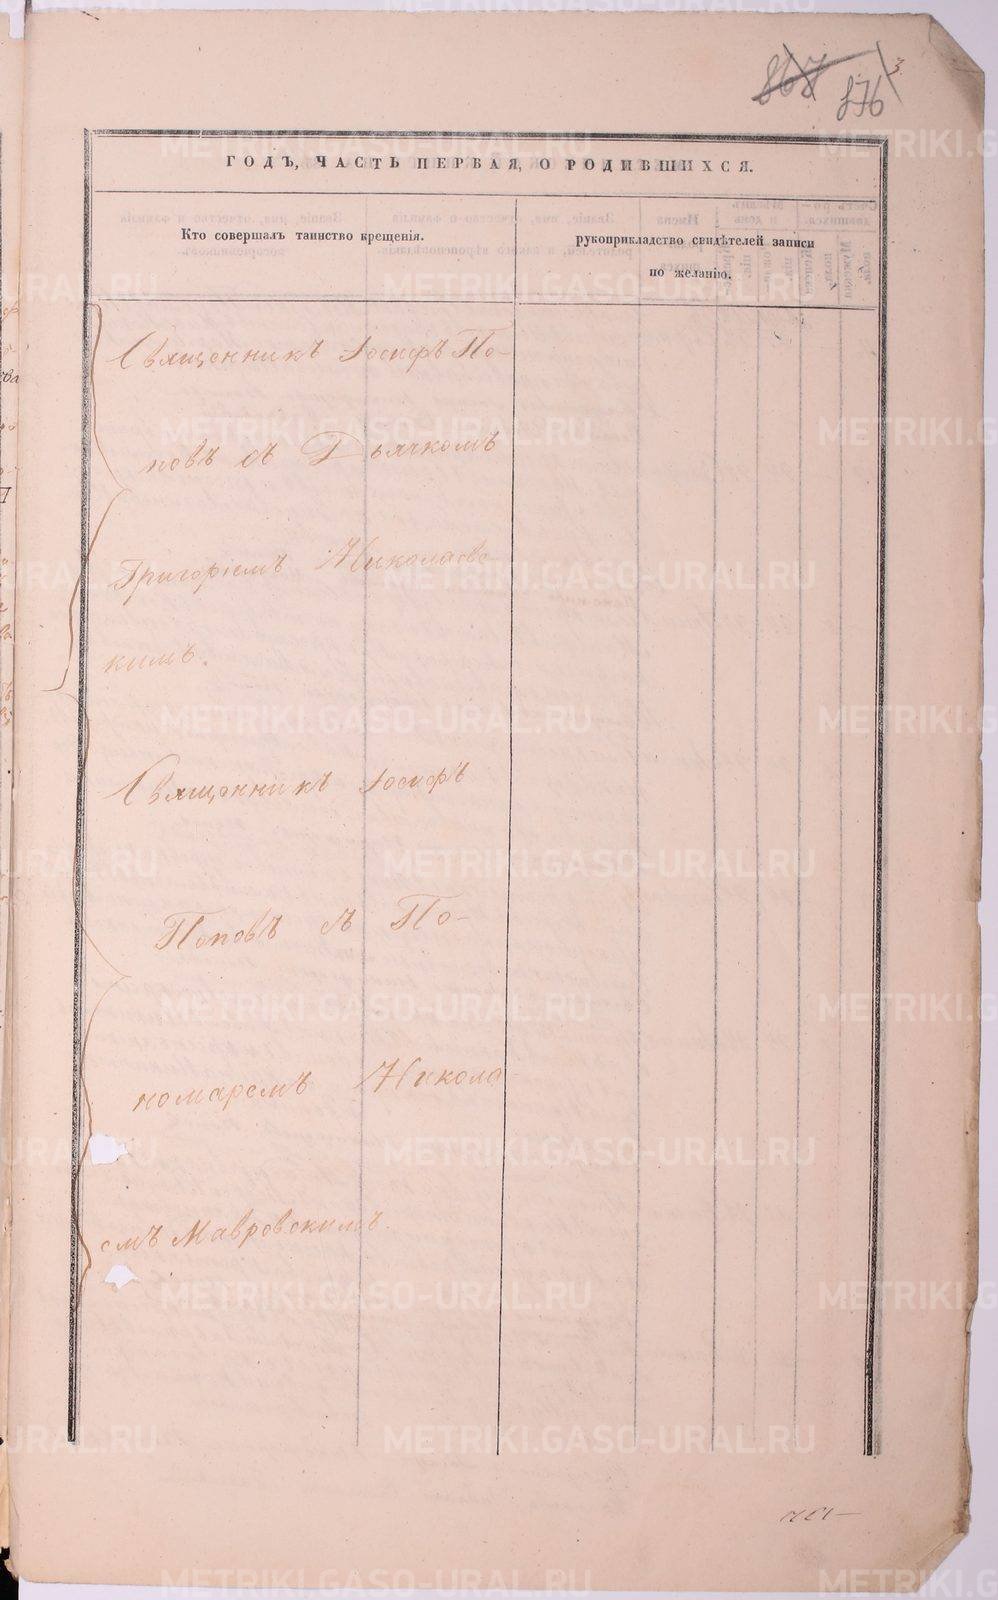 867 876
3
ГОДЪ, ЧАСТЬ ПЕРВАЯ, О РОДИВШИХСЯ.
Кто совершалъ таинство крещенія.
рукоприкладство свидѣтелей записи
по желанію.
Священникъ Іосифъ По-
повъ съ Дьячкомъ
Григоріемъ Николаевс-
кимъ.
Священникъ Іосифъ
Поповъ съ По-
номаремъ Никола-
емъ Мавровскимъ.
METRIKI.GASO-URAL.RU